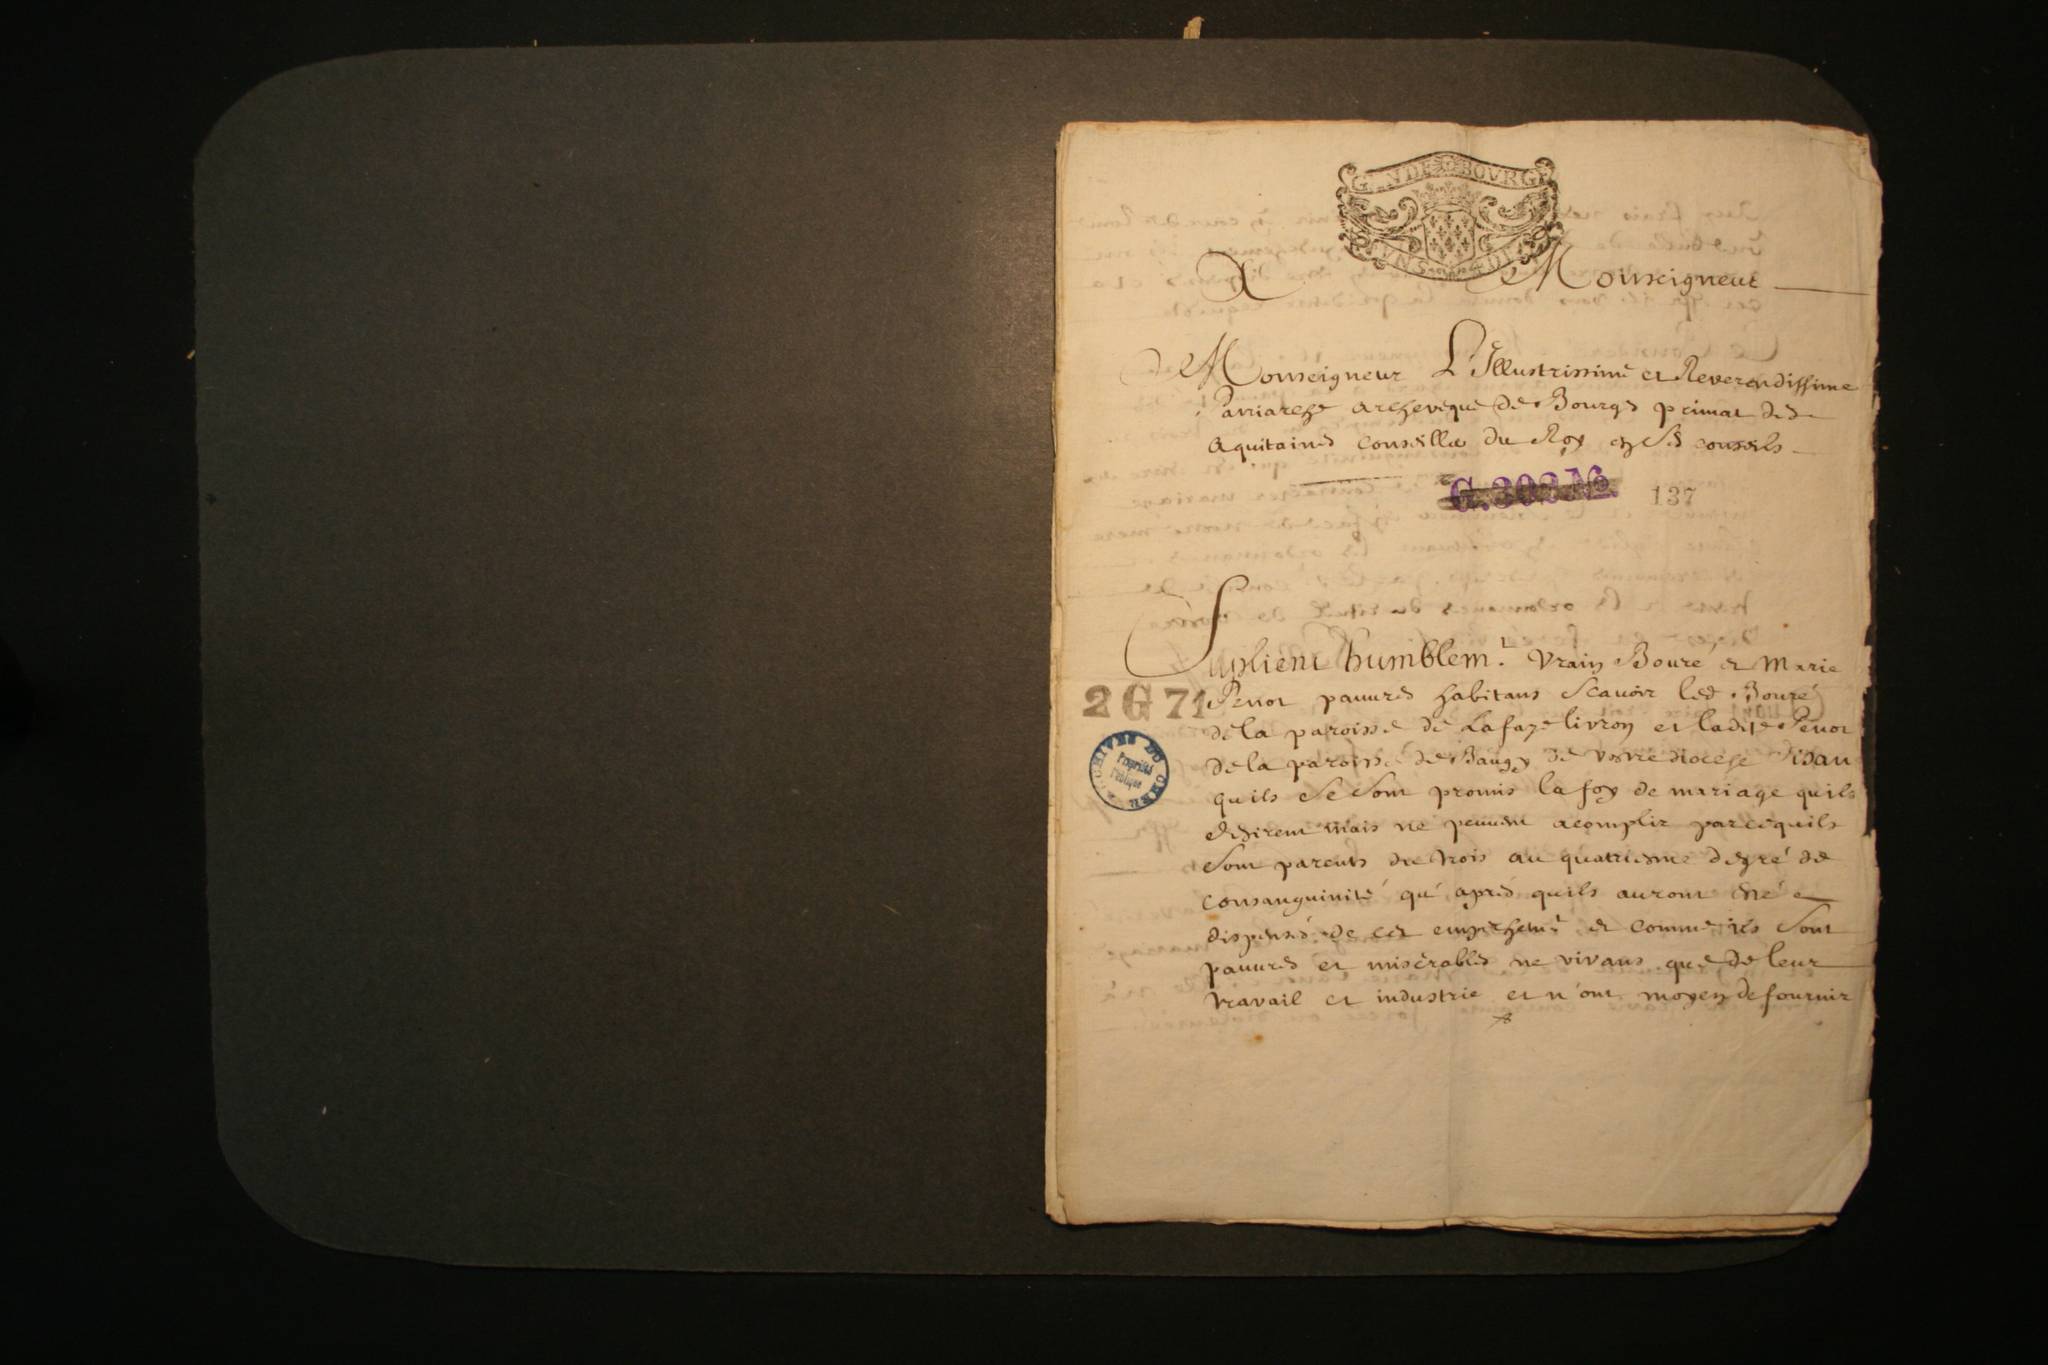 GEN DE BOVRGES
A Monseigneur
Monseigneur L'Illustrissime et Reverendissime
Patriarche archeveque de Bourges primat des
aquitaines conseiller du Roy en ses conseils
G. 303 No 137
Suplient humblemt. Vrain Bouré et Marie
Perrot pauures habitans scavoir led. Bouré
de la paroisse de Lafaye livron et ladite Perrot
2 G 71
de la paroisse de Baugy de votre diocese disan
ARCHIVES DU CHER
Propriété
Publique
quils se sont promis la foy de mariage quils
desirent mais ne peuuent acomplir parcequils
sont parents du trois au quatriesme degré de
consanguinité qu' apres quils auront esté
dispensés de cet empechemt et comme ils sont
pauures et misérables ne vivans que de leur
travail et industrie et n'ont moyen de fournir